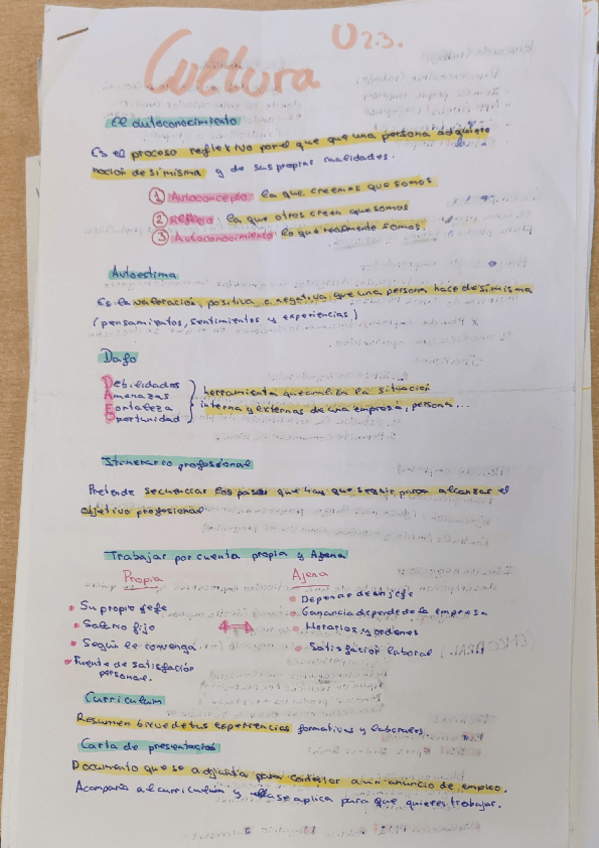 Cultura U 2.3.
El autoconocimiento
Es el proceso reflexivo por el que que una persona adquiere
noción de si misma y de sus propias cualidades.
1 Autoconcepto: lo que creemos que somos
2 Reflejo: lo que otros creen que somos
3 Autoconocimiento: lo que realmente somos.
Autoestima
Es la valoración, positiva o negativa que una persona hace de si misma
(pensamientos, sentimientos y experiencias)
Dafo
Debilidades
Amenazas
Fortaleza
Oportunidad
herramienta que analiza la situación
interna y externas de una empresa, persona...
Itinerario profesional
Pretende secuenciar los pasos que hay que seguir para alcanzar el
objetivo profesional
Trabajar por cuenta propia y Ajena
Propia
Ajena
Su propio jefe
Salario fijo
Según le convenga
Fuente de satisfacción
personal.
Depende de un jefe
Ganancia depende de la empresa
Horarios y ordenes
Satisfación laboral
Curriculum
Resumen breve de tus experiencias formativas y laborales.
Carta de presentación
Documento que se adjunta para contestar a un anuncio de empleo.
Acompaña al curriculum y se aplica para que quieres trabajar.